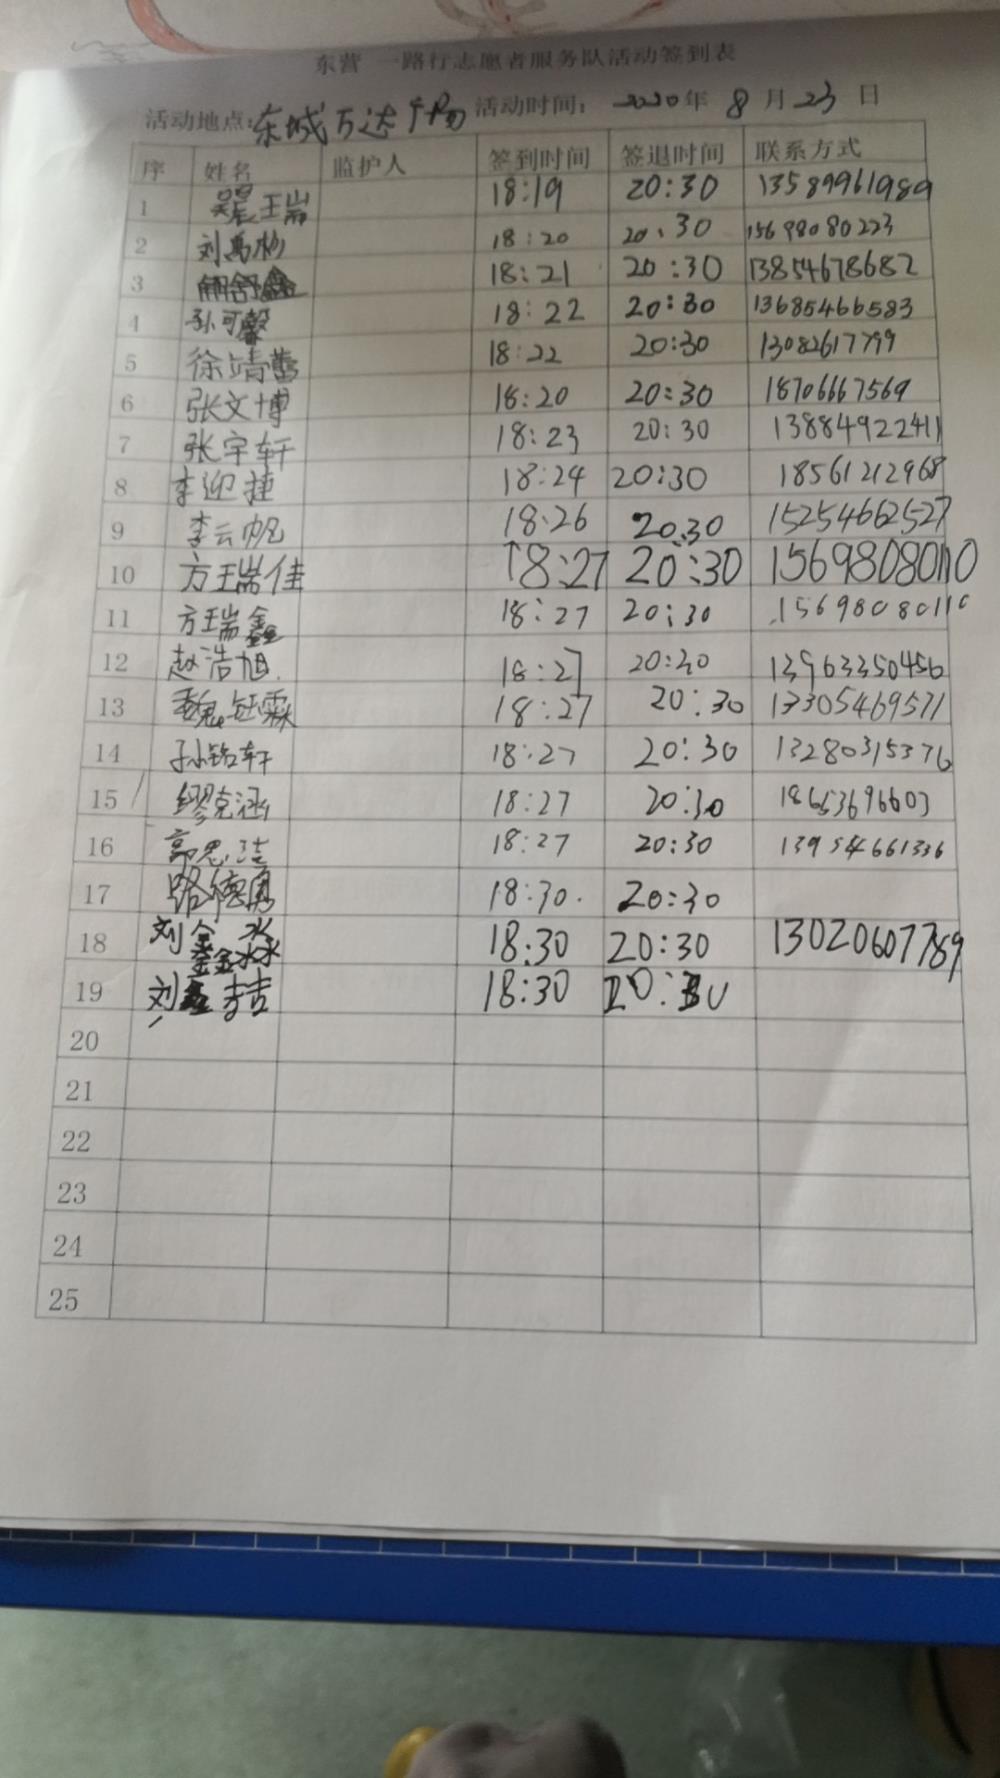 东营 一路行志愿者服务队活动签到表
活动地点：东城万达广场 活动时间： 2020年 8 月 23 日
序 姓名 监护人 签到时间 签退时间 联系方式
1 18:19 20:30 13589961989
2 刘禹杉 18:20 20:30 15698080223
3 18:21 20:30 13854678682
4 孙可馨 18:22 20:30 13685466583
5 徐靖蕾 18:22 20:30 13082617799
6 张文博 18:20 20:30 18706667569
7 张宇轩 18:23 20:30 13884922411
8 李迎捷 18:24 20:30 18561212968
9 李云帆 18:26 20:30 15254662527
10 方瑞佳 18:27 20:30 15698080110
11 方瑞鑫 18:27 20:30 15698080110
12 赵浩旭 18:27 20:30 13963350456
13 魏钰霖 18:27 20:30 13305469571
14 孙铭轩 18:27 20:30 13280315376
15 缪克涵 18:27 20:30 18653696603
16 郭思洁 18:27 20:30 13954661336
17 路德勇 18:30 20:30
18 刘鑫淼 18:30 20:30 13020607789
19 刘鑫喆 18:30 20:30
20
21
22
23
24
25